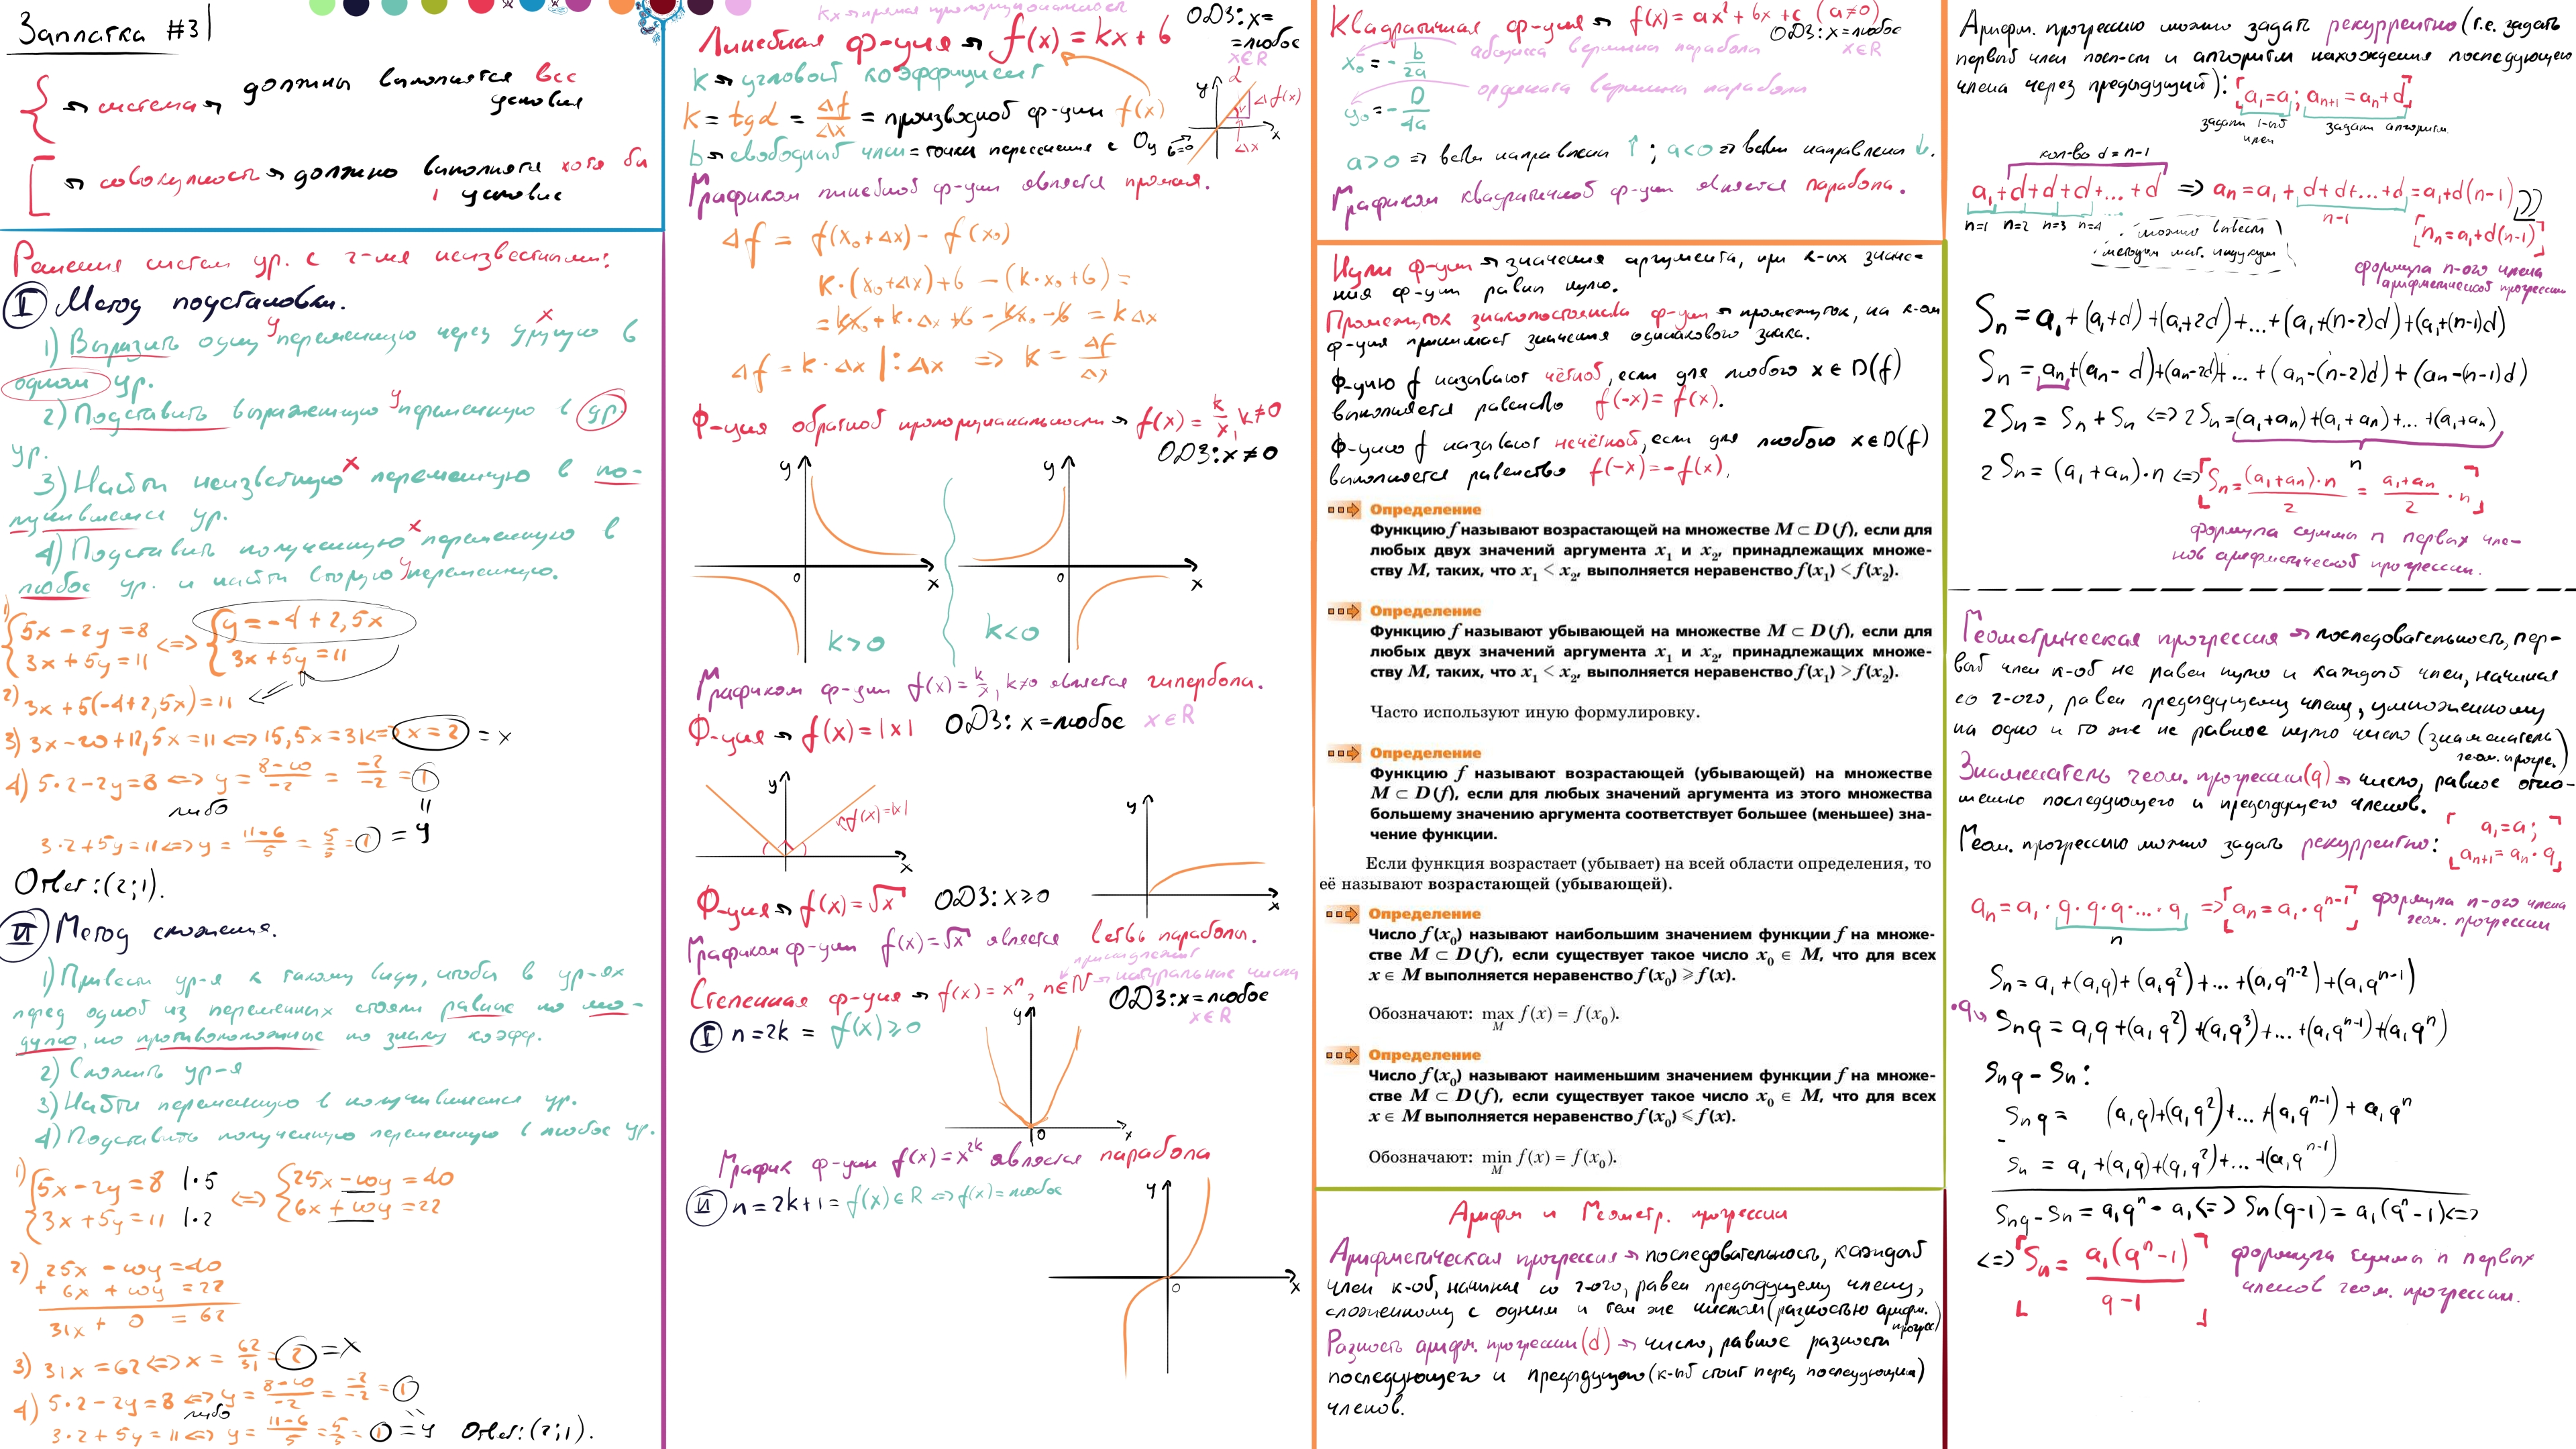 Заплатка #3
{ → система → должны выполнятся все
условия
[ → совокупность → должно выполнятся хотя бы
1 условие
Решения систем ур. с 2-мя неизвестными:
I Метод подстановки.
1) Выразить одну y переменную через другую x в
одном ур.
2) Подставить выраженную y переменную в др.
ур.
3) Найти неизвестную x переменную в по-
лучившемся ур.
4) Подставить полученную x переменную в
любое ур. и найти вторую y переменную.
1) {5x - 2y = 8 <=> {y = -4 + 2,5x
{3x + 5y = 11 {3x + 5y = 11
2) 3x + 5(-4 + 2,5x) = 11
3) 3x - 20 + 12,5x = 11 <=> 15,5x = 31 <=> x = 2 = x
4) 5·2 - 2y = 8 <=> y = (8-10)/-2 = -2/-2 = 1
либо
3·2 + 5y = 11 <=> y = (11-6)/5 = 5/5 = 1 = y
Ответ: (2;1).
II Метод сложения.
1) Привести ур-я к такому виду, чтобы в ур-ях
перед одной из переменных стояли равные по мо-
дулю, но противоположные по знаку коэфф.
2) Сложить ур-я
3) Найти переменную в получившемся ур.
4) Подставить полученную переменную в любое ур.
1) {5x - 2y = 8 |·5 <=> {25x - 10y = 40
{3x + 5y = 11 |·2 {6x + 10y = 22
2) 25x - 10y = 40
+ 6x + 10y = 22
31x + 0 = 62
3) 31x = 62 <=> x = 62/31 = 2 = x
4) 5·2 - 2y = 8 <=> y = (8-10)/-2 = -2/-2 = 1
либо
3·2 + 5y = 11 <=> y = (11-6)/5 = 5/5 = 1 = y Ответ: (2;1).
kx → прямая пропорциональность
Линейная ф-ция → f(x) = kx + b ОДЗ: x =
= любое
x ∈ R
k → угловой коэффициент
k = tg α = Δf/Δx = производной ф-ции f(x)
b → свободный член = точка пересечения с Oy b=0
y α Δf(x) Δx x
Графиком линейной ф-ции является прямая.
Δf = f(x₀ + Δx) - f(x₀)
k·(x₀ + Δx) + b - (k·x₀ + b) =
= kx₀ + k·Δx + b - kx₀ - b = kΔx
Δf = k·Δx |:Δx => k = Δf/Δx
Ф-ция обратной пропорциональности → f(x) = k/x, k≠0
ОДЗ: x ≠ 0
y 0 x k>0
y 0 x k<0
Графиком ф-ции f(x) = k/x, k≠0 является гипербола.
Ф-ция → f(x) = |x| ОДЗ: x = любое x ∈ R
y f(x)=|x| x
y x
Ф-ция → f(x) = √x ОДЗ: x ≥ 0
Графиком ф-ции f(x) = √x является ветвь параболы.
принадлежит
Степенная ф-ция → f(x) = xⁿ, n ∈ N → натуральные числа
ОДЗ: x = любое
x ∈ R
I n = 2k = f(x) ≥ 0
y 0 x
График ф-ции f(x) = x²ᵏ является парабола
II n = 2k+1 = f(x) ∈ R <=> f(x) = любое
y 0 x
Квадратичная ф-ция → f(x) = ax² + bx + c (a≠0)
ОДЗ: x = любое
x ∈ R
x₀ = -b/2a абсцисса вершины параболы
y₀ = -D/4a ордината вершины параболы
a>0 => ветви направлены ↑; a<0 => ветви направлены ↓.
Графиком квадратичной ф-ции является парабола.
Нули ф-ции → значения аргумента, при к-ых значе-
ния ф-ции равны нулю.
Промежуток знакопостоянства ф-ции → промежуток, на к-ом
ф-ция принимает значения одинакового знака.
Ф-цию f называют чётной, если для любого x ∈ D(f)
выполняется равенство f(-x) = f(x).
Ф-цию f называют нечётной, если для любого x ∈ D(f)
выполняется равенство f(-x) = -f(x).
Определение
Функцию f называют возрастающей на множестве M ⊂ D(f), если для
любых двух значений аргумента x₁ и x₂, принадлежащих множе-
ству M, таких, что x₁ < x₂, выполняется неравенство f(x₁) < f(x₂).
Определение
Функцию f называют убывающей на множестве M ⊂ D(f), если для
любых двух значений аргумента x₁ и x₂, принадлежащих множе-
ству M, таких, что x₁ < x₂, выполняется неравенство f(x₁) > f(x₂).
Часто используют иную формулировку.
Определение
Функцию f называют возрастающей (убывающей) на множестве
M ⊂ D(f), если для любых значений аргумента из этого множества
большему значению аргумента соответствует большее (меньшее) зна-
чение функции.
Если функция возрастает (убывает) на всей области определения, то
её называют возрастающей (убывающей).
Определение
Число f(x₀) называют наибольшим значением функции f на множе-
стве M ⊂ D(f), если существует такое число x₀ ∈ M, что для всех
x ∈ M выполняется неравенство f(x₀) ⩾ f(x).
Обозначают: max f(x) = f(x₀).
M
Определение
Число f(x₀) называют наименьшим значением функции f на множе-
стве M ⊂ D(f), если существует такое число x₀ ∈ M, что для всех
x ∈ M выполняется неравенство f(x₀) ⩽ f(x).
Обозначают: min f(x) = f(x₀).
M
Арифм и Геометр. прогрессии
Арифметическая прогрессия → последовательность, каждый
член к-ой, начиная со 2-ого, равен предыдущему члену,
сложенному с одним и тем же числом (разностью арифм.
прогрес)
Разность арифм. прогрессии (d) → число, равное разности
последующего и предыдущего (к-ый стоит перед последующим)
членов.
Арифм. прогрессию можно задать рекуррентно (т.е. задать
первый член посл-си и алгоритм нахождения последующего
члена через предыдущий): [a₁ = a; aₙ₊₁ = aₙ + d]
задали 1-ый член задали алгоритм
кол-во d = n-1
a₁+d+d+d+...+d => aₙ = a₁ + d+d+...+d = a₁ + d(n-1)
n=1 n=2 n=3 n=4 ... n-1
можно вывести
методом мат. индукции
[nₙ = a₁ + d(n-1)]
формула n-ого члена
арифметической прогрессии
Sₙ = a₁ + (a₁+d) + (a₁+2d) + ... + (a₁+(n-2)d) + (a₁+(n-1)d)
Sₙ = aₙ + (aₙ - d) + (aₙ-2d) + ... + (aₙ-(n-2)d) + (aₙ-(n-1)d)
2Sₙ = Sₙ + Sₙ <=> 2Sₙ = (a₁+aₙ) + (a₁+aₙ) + ... + (a₁+aₙ)
n
2Sₙ = (a₁+aₙ)·n <=> [Sₙ = (a₁+aₙ)·n/2 = (a₁+aₙ)/2 · n]
формула суммы n первых чле-
нов арифметической прогрессии.
Геометрическая прогрессия → последовательность, пер-
вый член к-ой не равен нулю и каждый член, начиная
со 2-ого, равен предыдущему члену, умноженному
на одно и то же не равное нулю число (знаменатель
геом. прогре.)
Знаменатель геом. прогрессии (q) → число, равное отно-
шению последующего и предыдущего членов.
Геом. прогрессию можно задать рекуррентно: [a₁ = a;
aₙ₊₁ = aₙ · q]
aₙ = a₁ · q·q·q·...·q => [aₙ = a₁ · qⁿ⁻¹] формула n-ого члена
n геом. прогрессии
Sₙ = a₁ + (a₁q) + (a₁q²) + ... + (a₁qⁿ⁻²) + (a₁qⁿ⁻¹)
·q Sₙq = a₁q + (a₁q²) + (a₁q³) + ... + (a₁qⁿ⁻¹) + (a₁qⁿ)
Sₙq - Sₙ:
Sₙq = (a₁q) + (a₁q²) + ... + (a₁qⁿ⁻¹) + a₁qⁿ
-
Sₙ = a₁ + (a₁q) + (a₁q²) + ... + (a₁qⁿ⁻¹)
Sₙq - Sₙ = a₁qⁿ - a₁ <=> Sₙ(q-1) = a₁(qⁿ-1) <=>
<=> [Sₙ = a₁(qⁿ-1)/(q-1)] формула суммы n первых
членов геом. прогрессии.